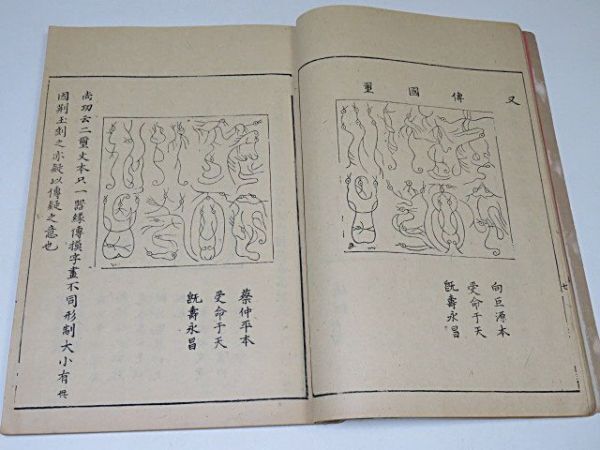 又傳國璽
向巨源本
受命于天
既壽永昌
七
蔡仲平本
受命于天
既壽永昌
尚功云二璽文本只一器緣傳摸字畫不同形制大小有
因荆玉刻之亦疑以傳疑之意也